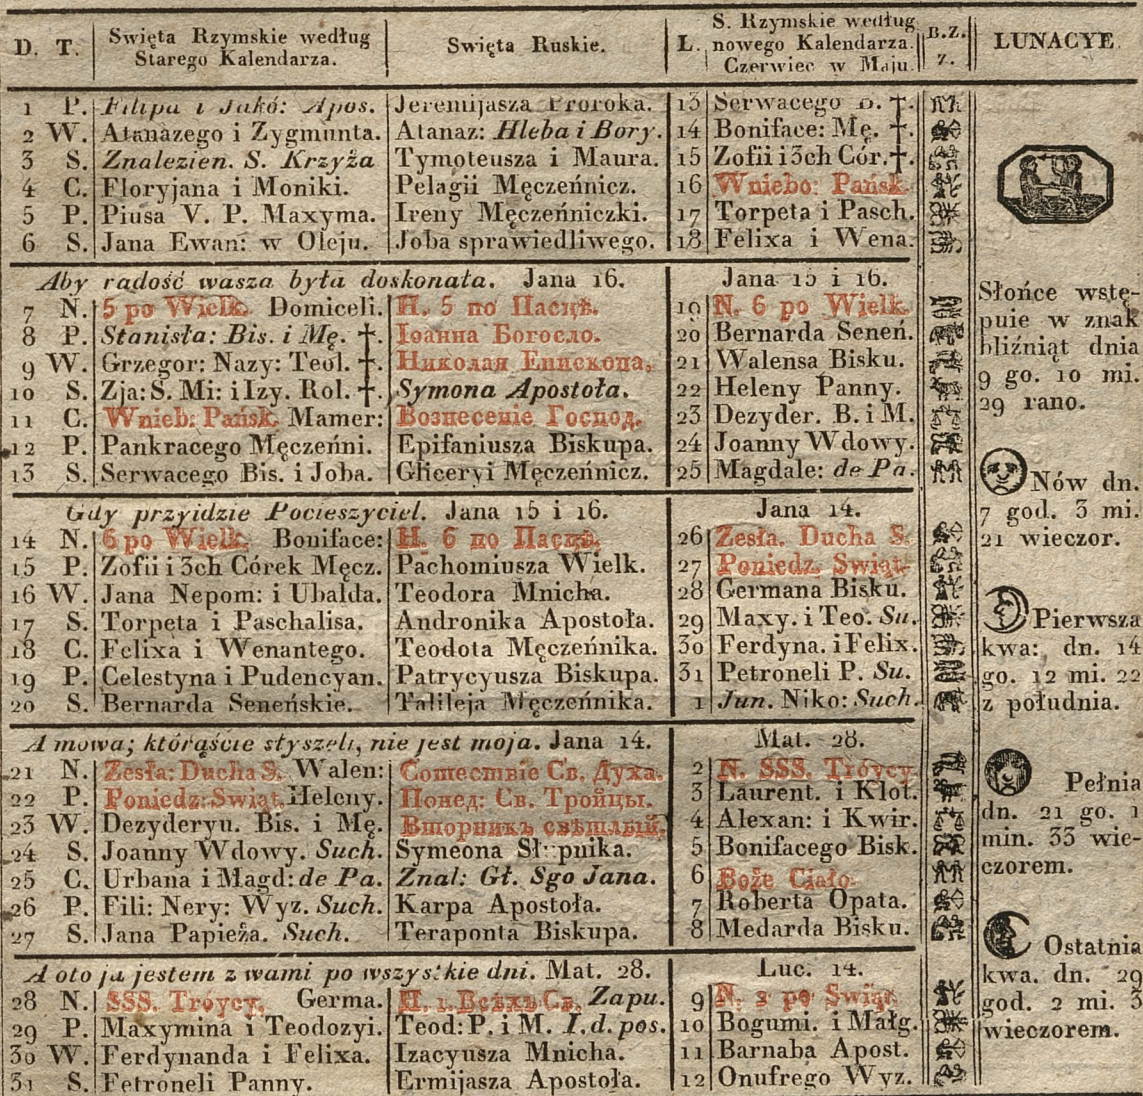 D. T. Swięta Rzymskie według Starego Kalendarza. Swięta Ruskie. L. S. Rzymskie według nowego Kalendarza. Czerwiec w Maju. B.Z. z. LUNACYE
1 P. Filipa i Jakó: Apos. Jeremijasza Proroka. 13 Serwacego B. †.
2 W. Atanazego i Zygmunta. Atanaz: Hleba i Bory. 14 Boniface: Mę. †.
3 S. Znalezien. S. Krzyża Tymoteusza i Maura. 15 Zofii i 3ch Cór. †.
4 C. Floryjana i Moniki. Pelagii Męczeńnicz. 16 Wniebo: Pańsk.
5 P. Piusa V. P. Maxyma. Ireny Męczeńniczki. 17 Torpeta i Pasch.
6 S. Jana Ewan: w Oleju. Joba sprawiedliwego. 18 Felixa i Wena.
Aby radość wasza była doskonała. Jana 16. Jana 15 i 16.
7 N. 5 po Wielk. Domiceli. Н. 5 по Пасцѣ. 19 N. 6 po Wielk.
8 P. Stanisła: Bis. i Mę. †. Іоанна Богосло. 20 Bernarda Seneń.
9 W. Grzegor: Nazy: Teol. †. Николая Епископа, 21 Walensa Bisku.
10 S. Zja: S. Mi: i Izy. Rol. †. Symona Apostoła. 22 Heleny Panny.
11 C. Wnieb: Pańsk. Mamer: Вознесеніе Господ. 23 Dezyder. B. i M.
12 P. Pankracego Męczeńni. Epifaniusza Biskupa. 24 Joanny Wdowy.
13 S. Serwacego Bis. i Joba. Gliceryi Męczeńnicz. 25 Magdale: de Pa.
Gdy przyidzie Pocieszyciel. Jana 15 i 16. Jana 14.
14 N. 6 po Wielk. Boniface: Н. 6 по Пасцѣ. 26 Zesła. Ducha S.
15 P. Zofii i 3ch Córek Męcz. Pachomiusza Wielk. 27 Poniedz. Swiąt.
16 W. Jana Nepom: i Ubalda. Teodora Mnicha. 28 Germana Bisku.
17 S. Torpeta i Paschalisa. Andronika Apostoła. 29 Maxy. i Teo. Su.
18 C. Felixa i Wenantego. Teodota Męczeńnika. 30 Ferdyna. i Felix.
19 P. Celestyna i Pudencyan. Patrycyusza Biskupa. 31 Petroneli P. Su.
20 S. Bernarda Seneńskie. Talileja Męczeńnika. 1 Jun. Niko: Such.
A mowa; którąście słyszeli, nie jest moja. Jana 14. Mat. 28.
21 N. Zesła: Ducha S. Walen: Сошествіе Св. Духа. 2 N. SSS. Tróycy
22 P. Poniedz: Swiąt. Heleny. Понед: Св. Тройцы. 3 Laurent. i Klot.
23 W. Dezyderyu. Bis. i Mę. Вторникъ свѣтлый. 4 Alexan: i Kwir.
24 S. Joanny Wdowy. Such. Symeona 5 Bonifacego Bisk.
25 C. Urbana i Magd: de Pa. Znal: Gł. Sgo Jana. 6 Boże Ciało.
26 P. Fili: Nery: Wyz. Such. Karpa Apostoła. 7 Roberta Opata.
27 S. Jana Papieża. Such. Teraponta Biskupa. 8 Medarda Bisku.
A oto ja jestem z wami po wszystkie dni. Mat. 28. Luc. 14.
28 N. SSS. Tróycy. Germa. Н. 1. Всѣхъ Св. Zapu. 9 N. 2 po Swiąt.
29 P. Maxymina i Teodozyi. Teod: P. i M. I. d. pos. 10 Bogumi. i Małg.
30 W. Ferdynanda i Felixa. Izacyusza Mnicha. 11 Barnaba Apost.
31 S. Petroneli Panny. Ermijasza Apostoła. 12 Onufrego Wyz.
Słońce wstę-
puie w znak
bliźniąt dnia
9 go. 10 mi.
29 rano.
Nów dn.
7 god. 3 mi.
21 wieczor.
Pierwsza
kwa: dn. 14
go. 12 mi. 22
z południa.
Pełnia
dn. 21 go. 1
min. 33 wie-
czorem.
Ostatnia
kwa. dn. 29
god. 2 mi. 3
wieczorem.